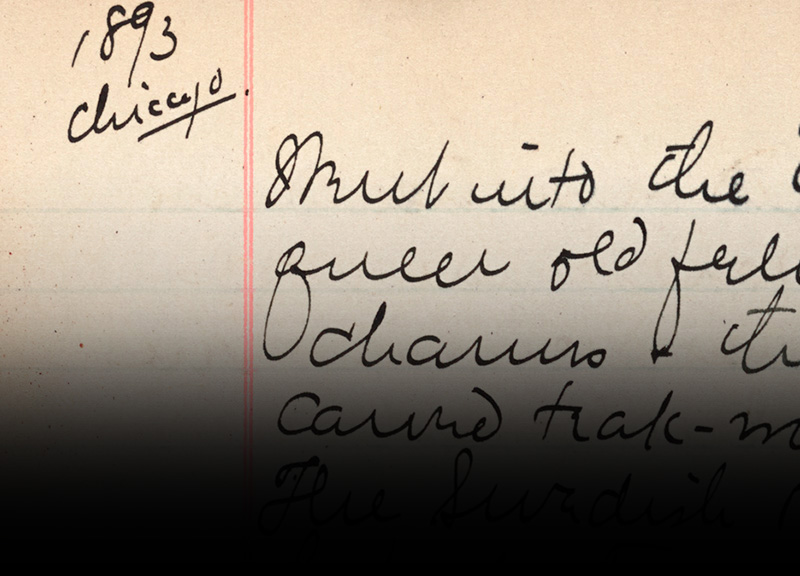 1893
Chicago.
Went into the
queer old
charms &
Carved teak-
The Swedish